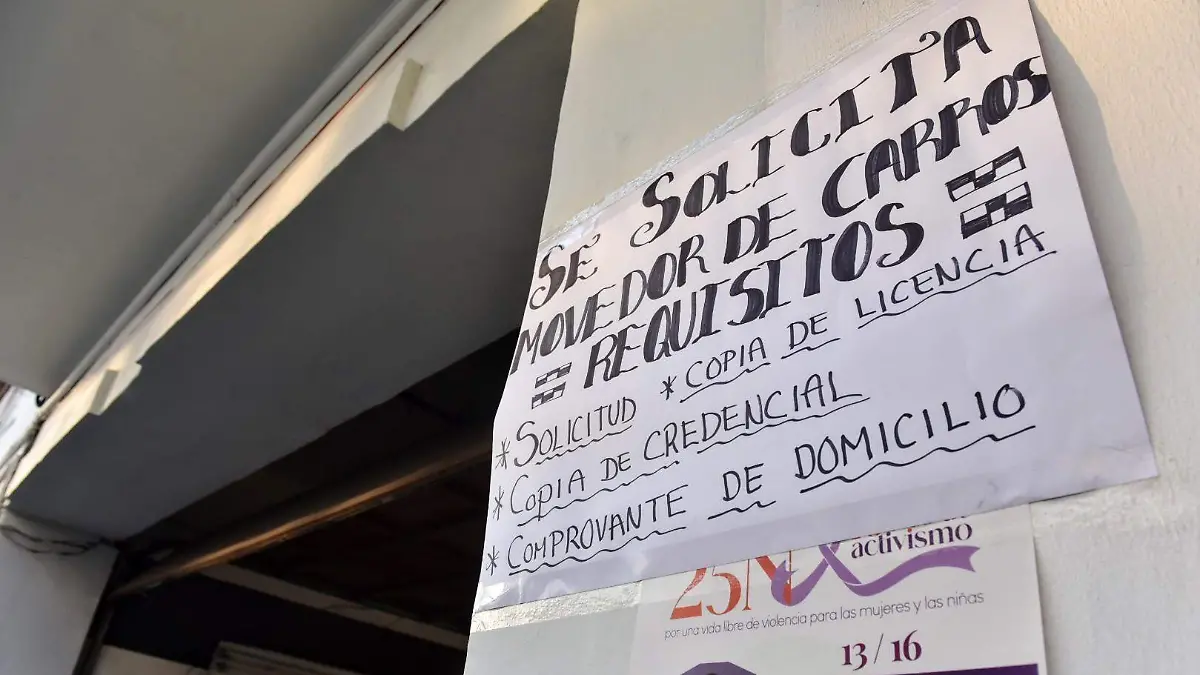 SE SOLICITA
MOVEDOR DE CARROS
= REQUISITOS =
* SOLICITUD * COPIA DE LICENCIA
* COPIA DE CREDENCIAL
* COMPROVANTE DE DOMICILIO
25N activismo
por una vida libre de violencia para las mujeres y las niñas
13/16